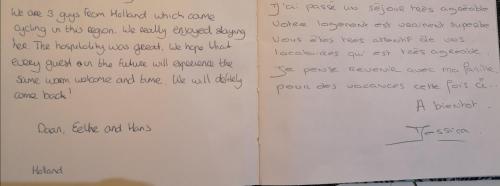 We are 3 guys from Holland which came
cycling in this region. We really enjoyed staying
her. The hospitality was great. We hope that
every guest in the future will experience the
same warm welcome and time. We will defitely
come back!
Daan, Eelke and Hans
Holland
J'ai passé un séjour très agréable
Votre logement est vraiment superbe
Vous êtes très attentif de vos
locataires qui est très agréable.
Je pense revenir avec ma famille
pour des vacances cette fois ci...
A bientot.
Jessica